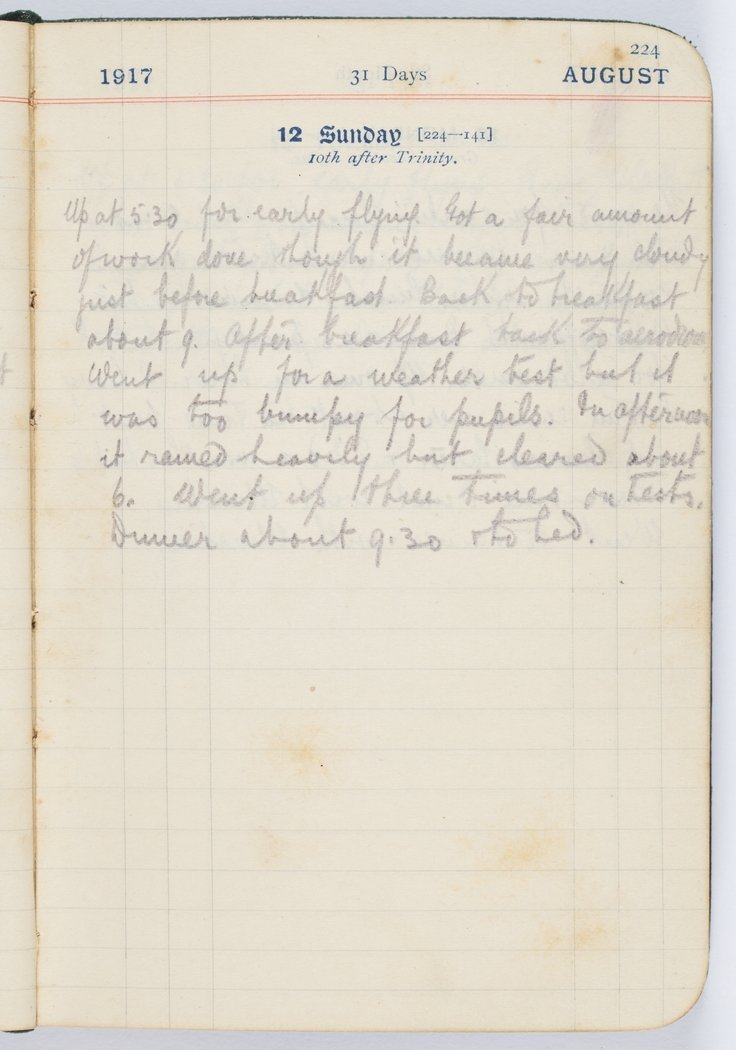 224
1917 31 Days AUGUST
12 Sunday [224—141]
10th after Trinity.
Up at 5.30 for early flying. Got a fair amount
of work done though it became very cloudy
just before breakfast. Back to breakfast
about 9. After breakfast back to aerodrome
Went up for a weather test but it
was too bumpy for pupils. In afternoon
it rained heavily but cleared about
6. Went up three times on tests.
Dinner about 9.30 & to bed.